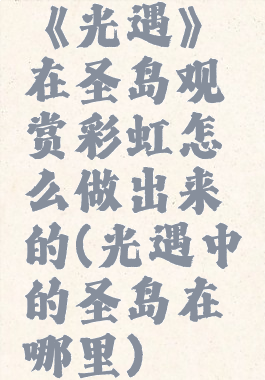 《光遇》
在圣岛观
赏彩虹怎
么做出来
的(光遇中
的圣岛在
哪里)